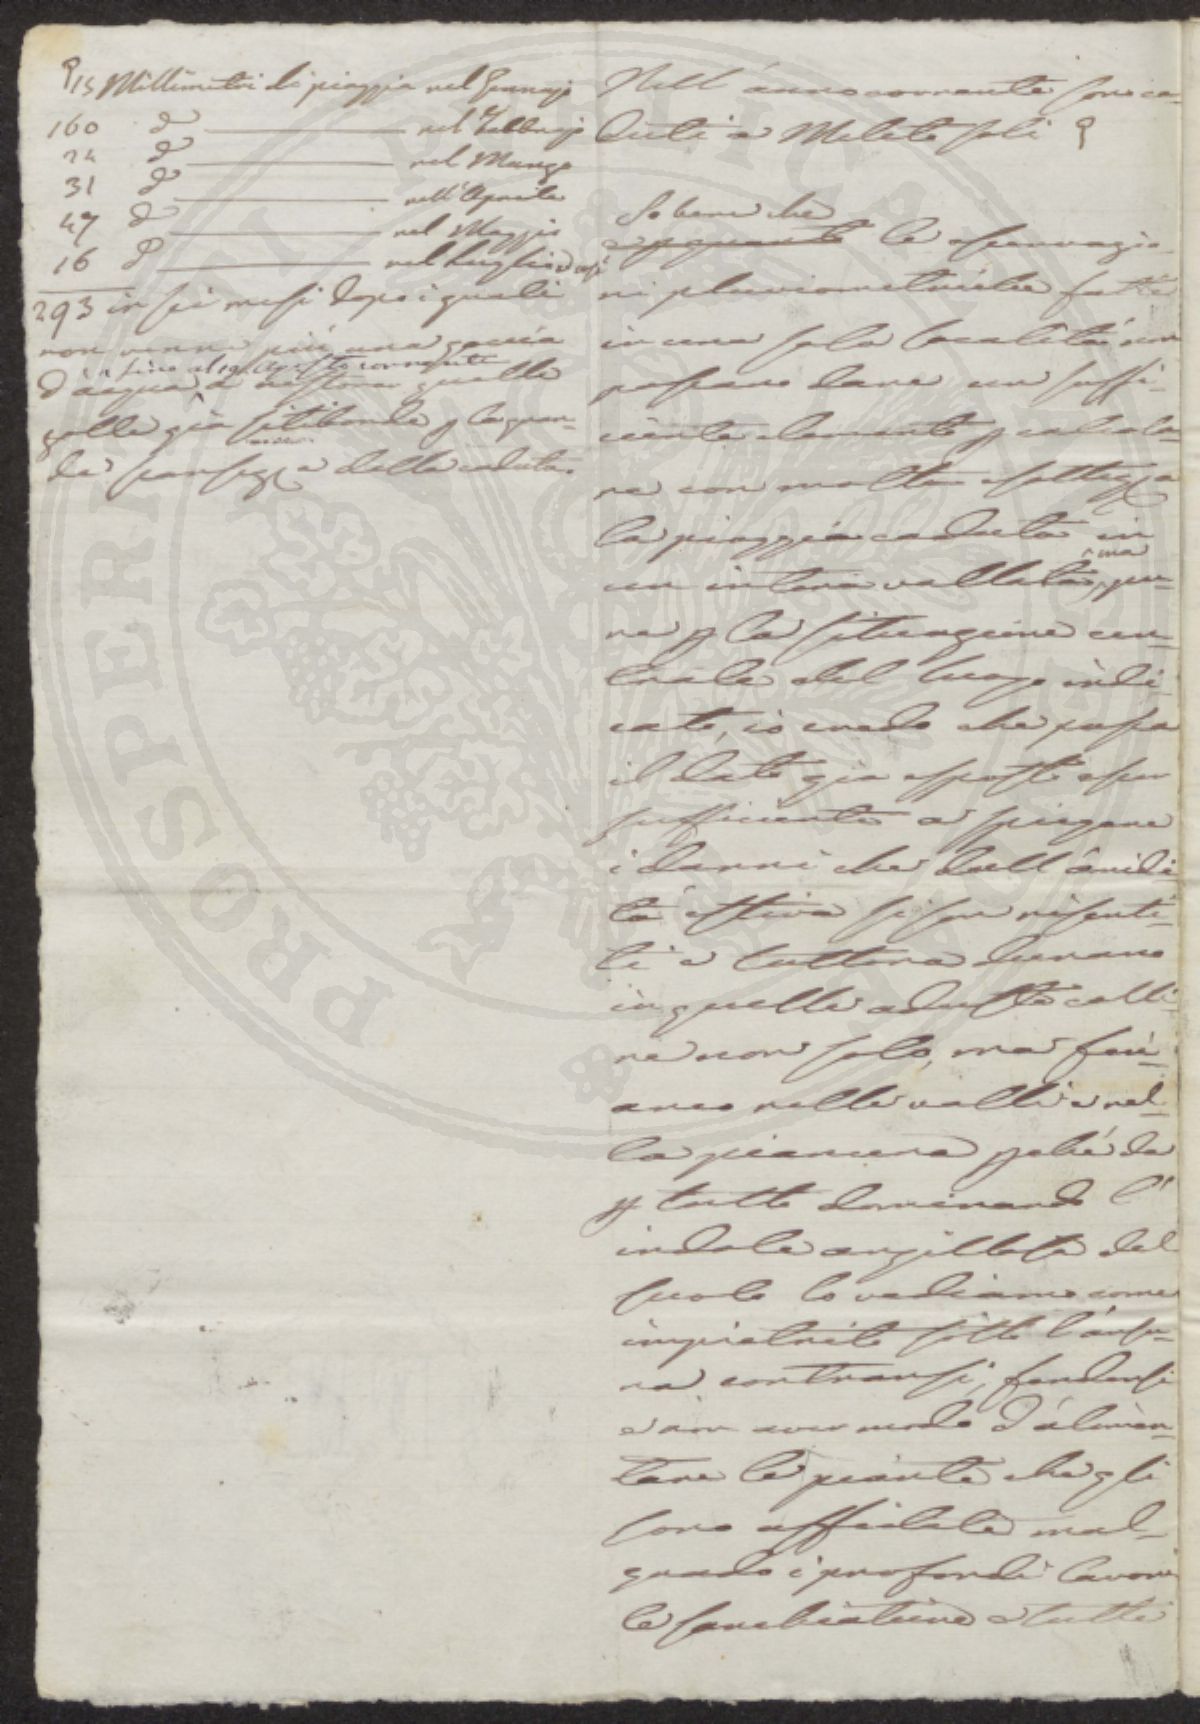 15 Millimetri di pioggia nel Gennajo
160 d° nel Febbrajo
24 d° nel Marzo
31 d° nell'Aprile
47 d° nel Maggio
16 d° nel Luglio e così
293 in sei mesi dopo i quali
non venne più una goccia
d'acqua a quelle
fino al 19 Agosto corrente
zolle già sitibonde p la gran-
de scarsezza delle cadute.
Nell'anno corrente sono ca-
duti a Meleto soli
So bene che
le osservazio-
ni pluviometriche fatte
in una sola località non
possano dare un suffi-
ciente elemento p calcola-
re con molta esattezza
la pioggia caduta in
un intera vallata, ma pu-
re p la situazione cen-
trale del luogo indi-
cato, io credo che possa
il dato già esposto esser
sufficiente a spiegare
i danni che dall'aridi-
tà estiva si son risenti-
ti e tuttora durano
in quelle aduste colli-
ne non solo, ma fin-
anco nelle valli e nel-
la pianura pché da
p tutto dominando l'
indole argillosa del
suolo lo vediamo come
impietrito sotto l'arsu-
ra contrarsi, fendersi
e non aver modo d'alimen-
tare le piante che gli
sono affidate mal-
grado i profondi lavori
le sarchiature e tutti
PROSPERITATI PUBLICAE